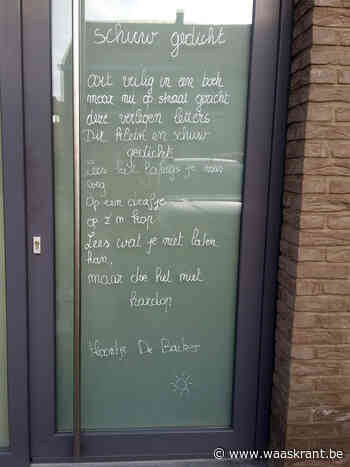 schuw gedicht
ooit veilig in een boek
maar nu op straat gezicht
deze verlegen letters
Dit klein en schuw
gedicht
Lees het je naar
weg
Op een
op z'n kop
Lees wat je niet laten
kan,
maar doe het niet
hardop
De Backer
www.waaskrant.be